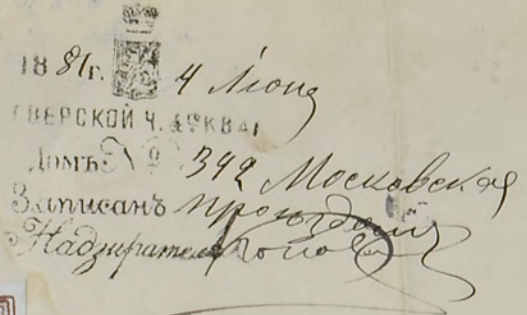 1881 г. 4 Июня
ТВЕРСКОЙ Ч. 4го КВАР
Домъ № 342 Московская
Записанъ проѣздомъ
Надзиратель